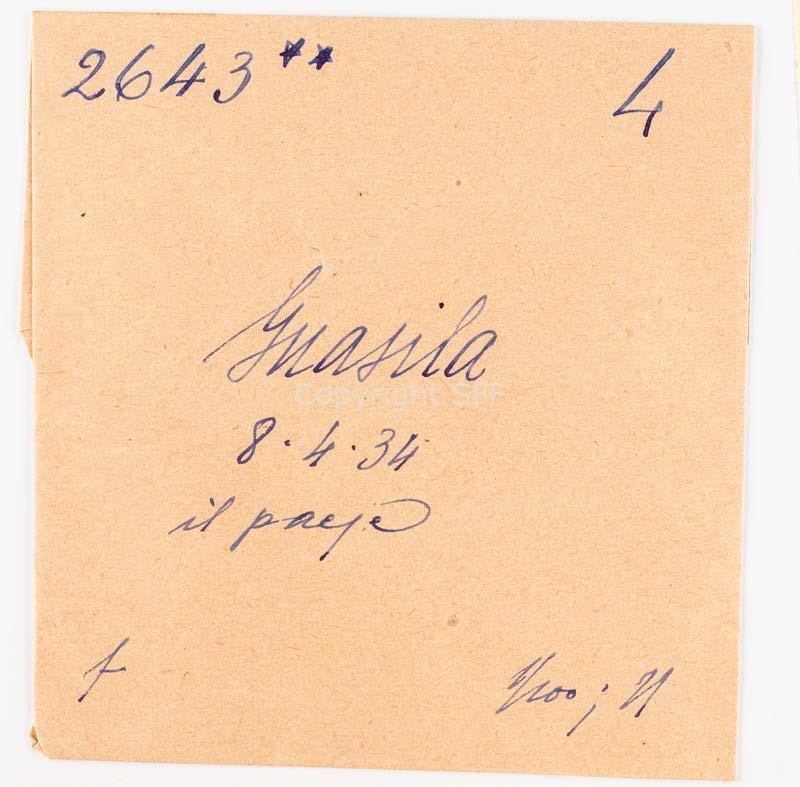 2643** 4
Guasila
Copyright SFF
8.4.34
il paese
f
1/100 ; 11